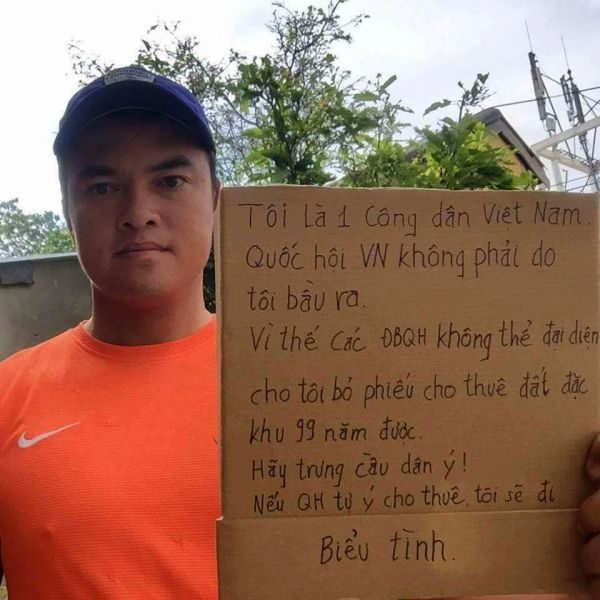 Tôi là 1 Công dân Việt Nam.
Quốc hội VN không phải do
tôi bầu ra.
Vì thế các ĐBQH không thể đại diện
cho tôi bỏ phiếu cho thuê đất đặc
khu 99 năm được.
Hãy trưng cầu dân ý!
Nếu QH tự ý cho thuê, tôi sẽ đi
Biểu tình.